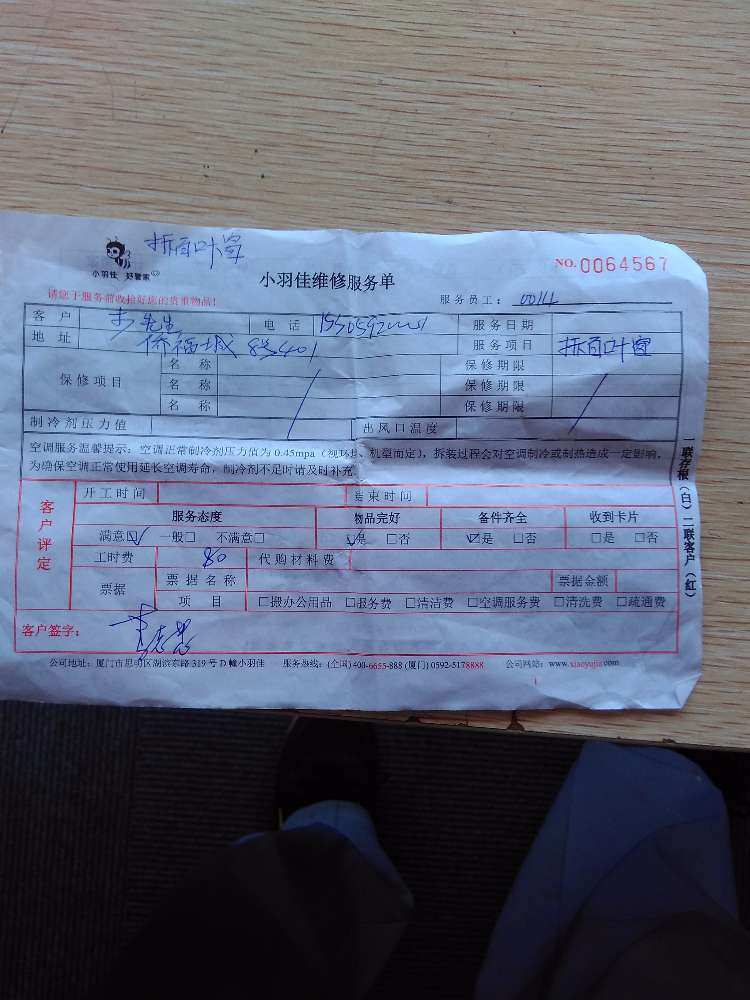 拆百叶窗
小羽佳 好管家
小羽佳维修服务单
NO. 0064567
请您于服务前收拾好您的贵重物品！
服务员工： 0014
客户 李先生 电话 服务日期
地址 侨福城 服务项目 拆百叶窗
保修项目 名称 保修期限
名称 保修期限
名称 保修期限
制冷剂压力值 出风口温度
空调服务温馨提示：空调正常制冷剂压力值为 0.45mpa（视环境、机型而定），拆装过程会对空调制冷或制热造成一定影响，
为确保空调正常使用延长空调寿命，制冷剂不足时请及时补充
客户评定
开工时间 结束时间
服务态度 物品完好 备件齐全 收到卡片
满意☑ 一般□ 不满意□ ☑是 □否 ☑是 □否 □是 □否
工时费 80 代购材料费
票据 票据名称 票据金额
项目 □搬办公用品 □服务费 □清洁费 □空调服务费 □清洗费 □疏通费
客户签字：
公司地址：厦门市思明区湖滨东路 319 号 D 幢小羽佳 服务热线：(全国) 400-6655-888 (厦门) 0592-5178888 公司网站：www.xiaoyujia.com
一联存根（白）二联客户（红）